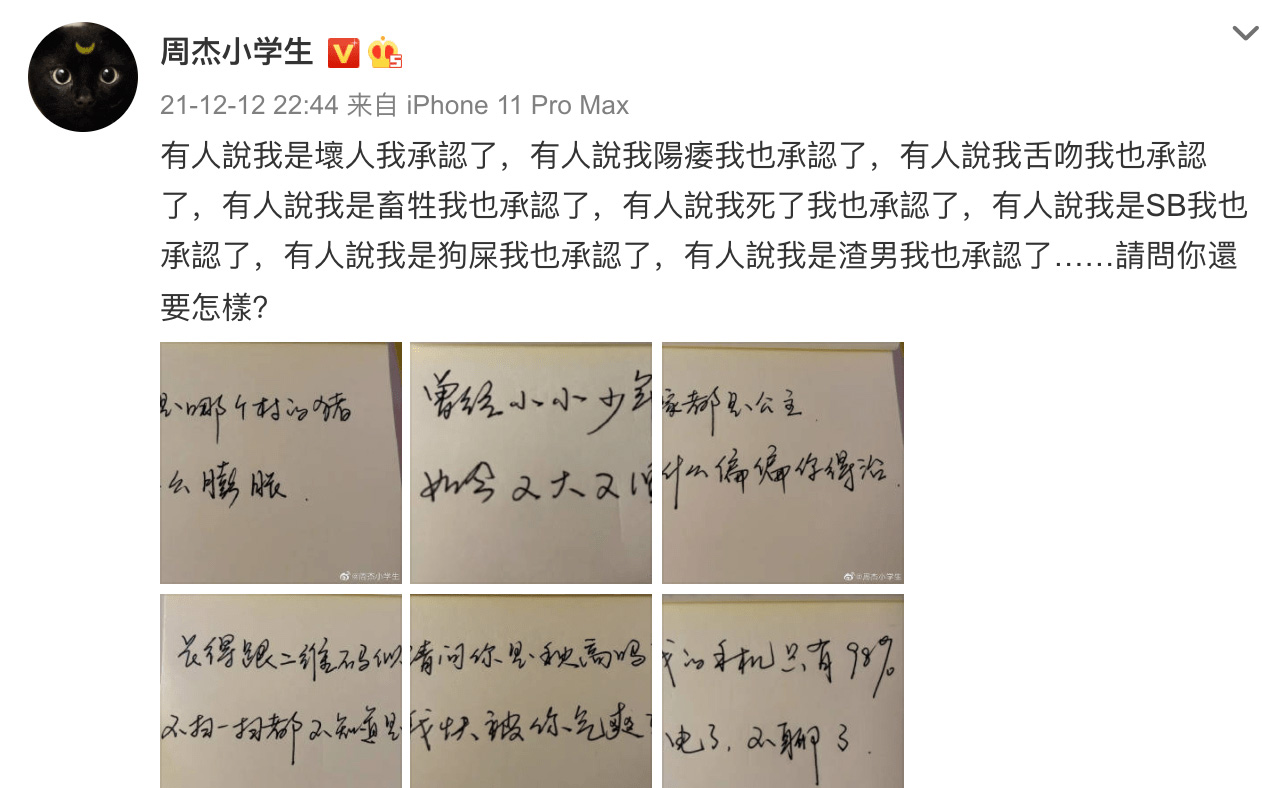 周杰小学生
21-12-12 22:44 来自 iPhone 11 Pro Max
有人說我是壞人我承認了，有人說我陽痿我也承認了，有人說我舌吻我也承認
了，有人說我是畜牲我也承認了，有人說我死了我也承認了，有人說我是SB我也
承認了，有人說我是狗屎我也承認了，有人說我是渣男我也承認了……請問你還
要怎樣？
是哪个村的猪
么膨胀.
@周杰小学生
曾经小小少年
如今又大又
家都是公主.
什么偏偏你得治.
@周杰小学生
长得跟二维码似
不扫一扫都不知道是
请问你是秋高吗
我快被你气爽了
我的手机只有98%
电了，不聊了.